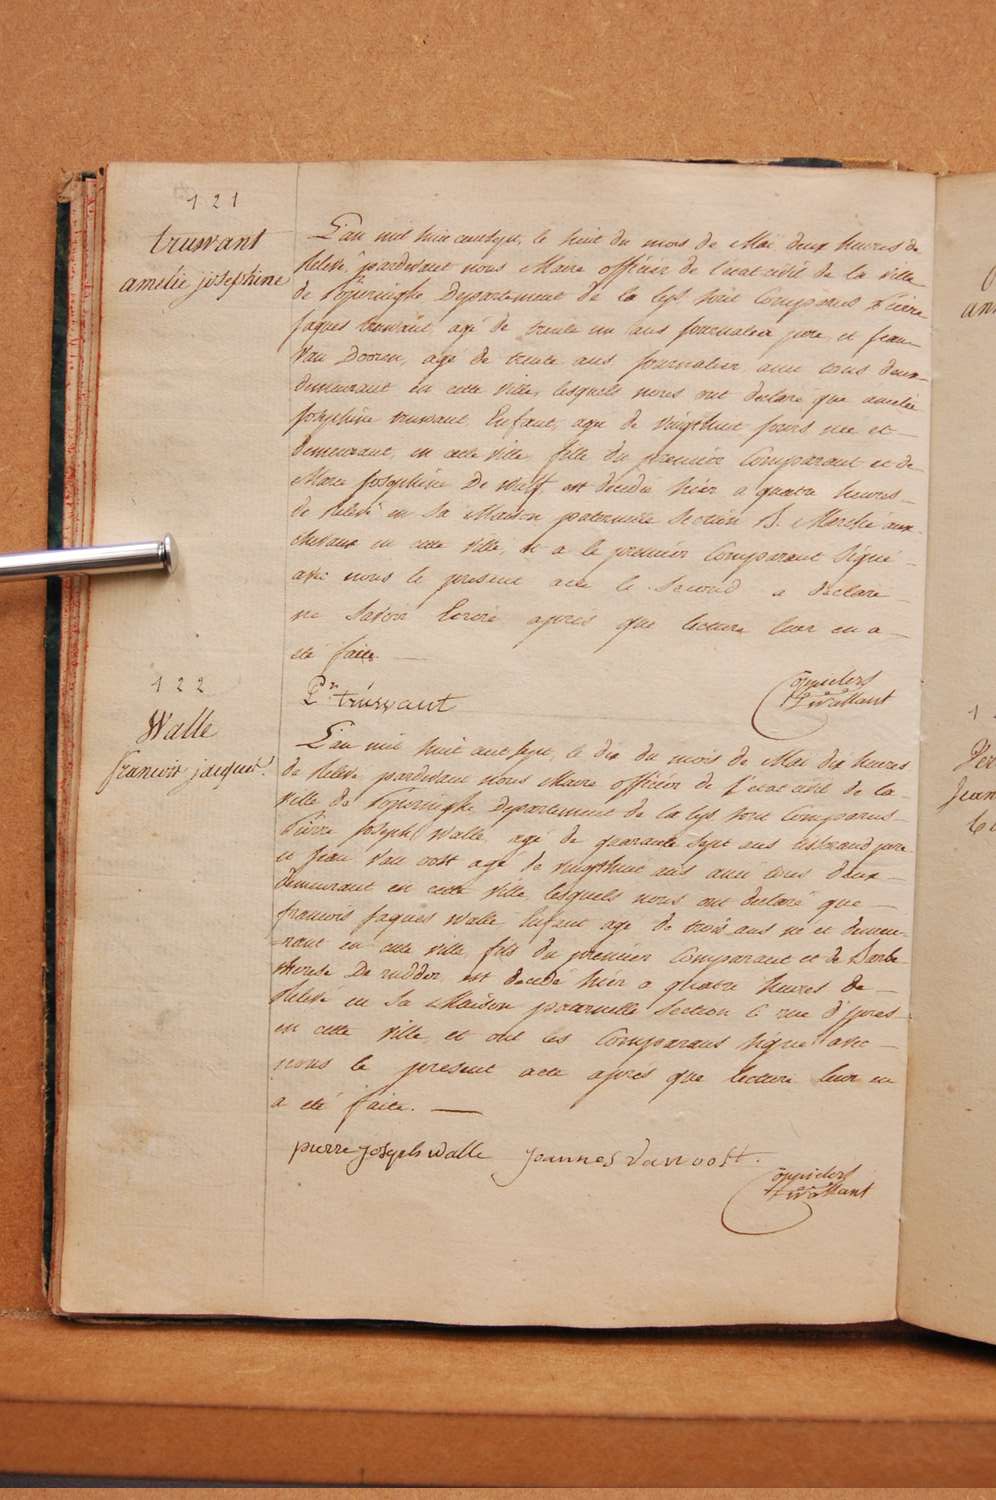 121
truwant
amelie josephine
L'an mil huit cent sept, le huit du mois de Mai deux heures de
Relevé, pardevant nous Maire officier de l'etat civil de la ville
de Poperinghe Departement de la Lys sont Comparus Pierre
Jaques truwant, agé de trente un ans Journalier pere, et Jean
Van Dooren, agé de trente ans Journalier ami tous deux
demeurant en cette ville, lesquels nous ont declaré que amelie
Josephine truwant Enfant, agée de vingthuit jours née et
demeurant, en cette ville, fille du premier Comparant et de
Marie Josephine De Wulf est decedée hier a quatre heures
de Relevé en sa Maison paternelle Section B. Marché aux
chevaux en cette ville, et a le premier Comparant Signé
avec nous le present acte le Second a declaré
ne Savoir Ecrire après que lecture leur en a
été faite
P.r truwant
122
Walle
francois jacques.
L'an mil huit cent sept, le dix du mois de Mai dix heures
de Relevé, pardevant nous Maire officier de l'etat civil de la
ville de Poperinghe Departement de la Lys sont Comparus
Pierre Joseph Walle, agé de quarante Sept ans tisserand pere
et Jean Van oost agé de vingthuit ans ami tous deux
demeurant en cette ville, lesquels nous ont declaré que
francois Jaques Walle Enfant agé de trois ans né et demeu-
-rant en cette ville, fils du premier Comparant et de Barbe
therese De rudder, est decedé hier a quatre heures de
Relevé en Sa Maison paternelle Section C rue d'Ypres
en cette ville, et ont les Comparans Signé avec
nous le present acte apres que lecture leur en
a été faite.
pierre joseph walle Joannes Van oost.